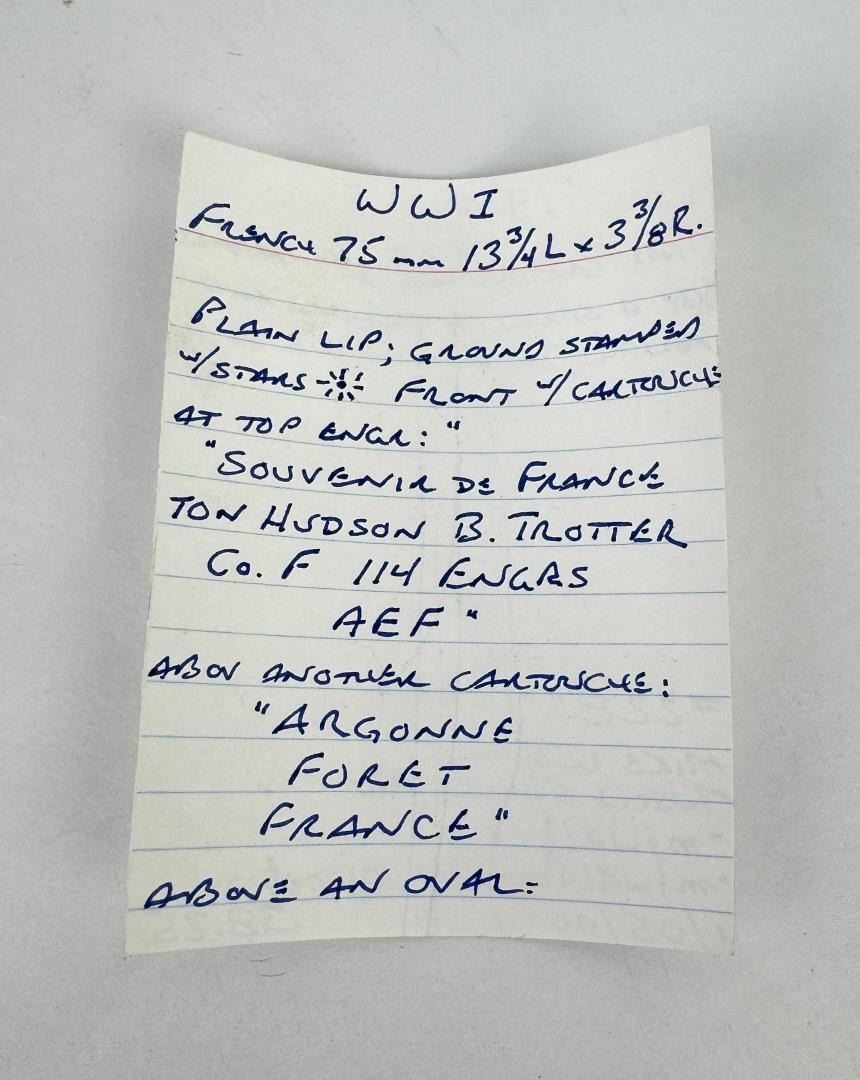 WWI
FRENCH 75 mm 13 3/4 L x 3 3/8 R.
PLAIN LIP; GROUND STAMPED
w/STARS FRONT w/ CARTOUCHE
AT TOP ENGR: "
"SOUVENIR DE FRANCE
TON HUDSON B. TROTTER
Co. F 114 ENGRS
AEF"
ABOV ANOTHER CARTOUCHE:
"ARGONNE
FORET
FRANCE"
ABOVE AN OVAL: